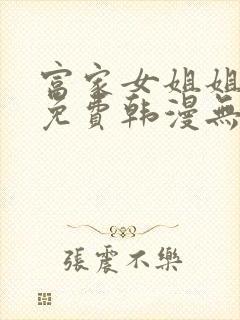 富家女姐姐
免費韩漫無
張震不樂